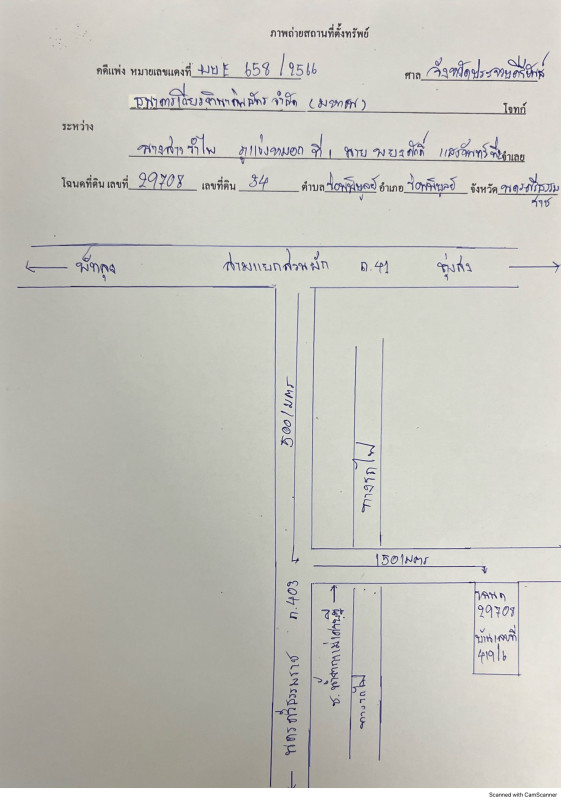 ภาพถ่ายสถานที่ตั้งทรัพย์
คดีแพ่ง หมายเลขแดงที่ ผบE 658/2566 ศาล จังหวัด
ธนาคารเกียรตินาคินภัทร จำกัด (มหาชน) โจทก์
ระหว่าง
นางสาวรำไพ ที่ 1 นาย จำเลย
โฉนดที่ดิน เลขที่ 29708 เลขที่ดิน 34 ตำบล ร่อนพิบูลย์ อำเภอ ร่อนพิบูลย์ จังหวัด นครศรีธรรมราช
พัทลุง สามแยกสวนผัก ถ.41 ทุ่งสง
500/เมตร
ทางรถไฟ
150/เมตร
ถ.403
นครศรีธรรมราช
ทางรถไฟ
โฉนด
29708
บ้านเลขที่
419/6
Scanned with CamScanner